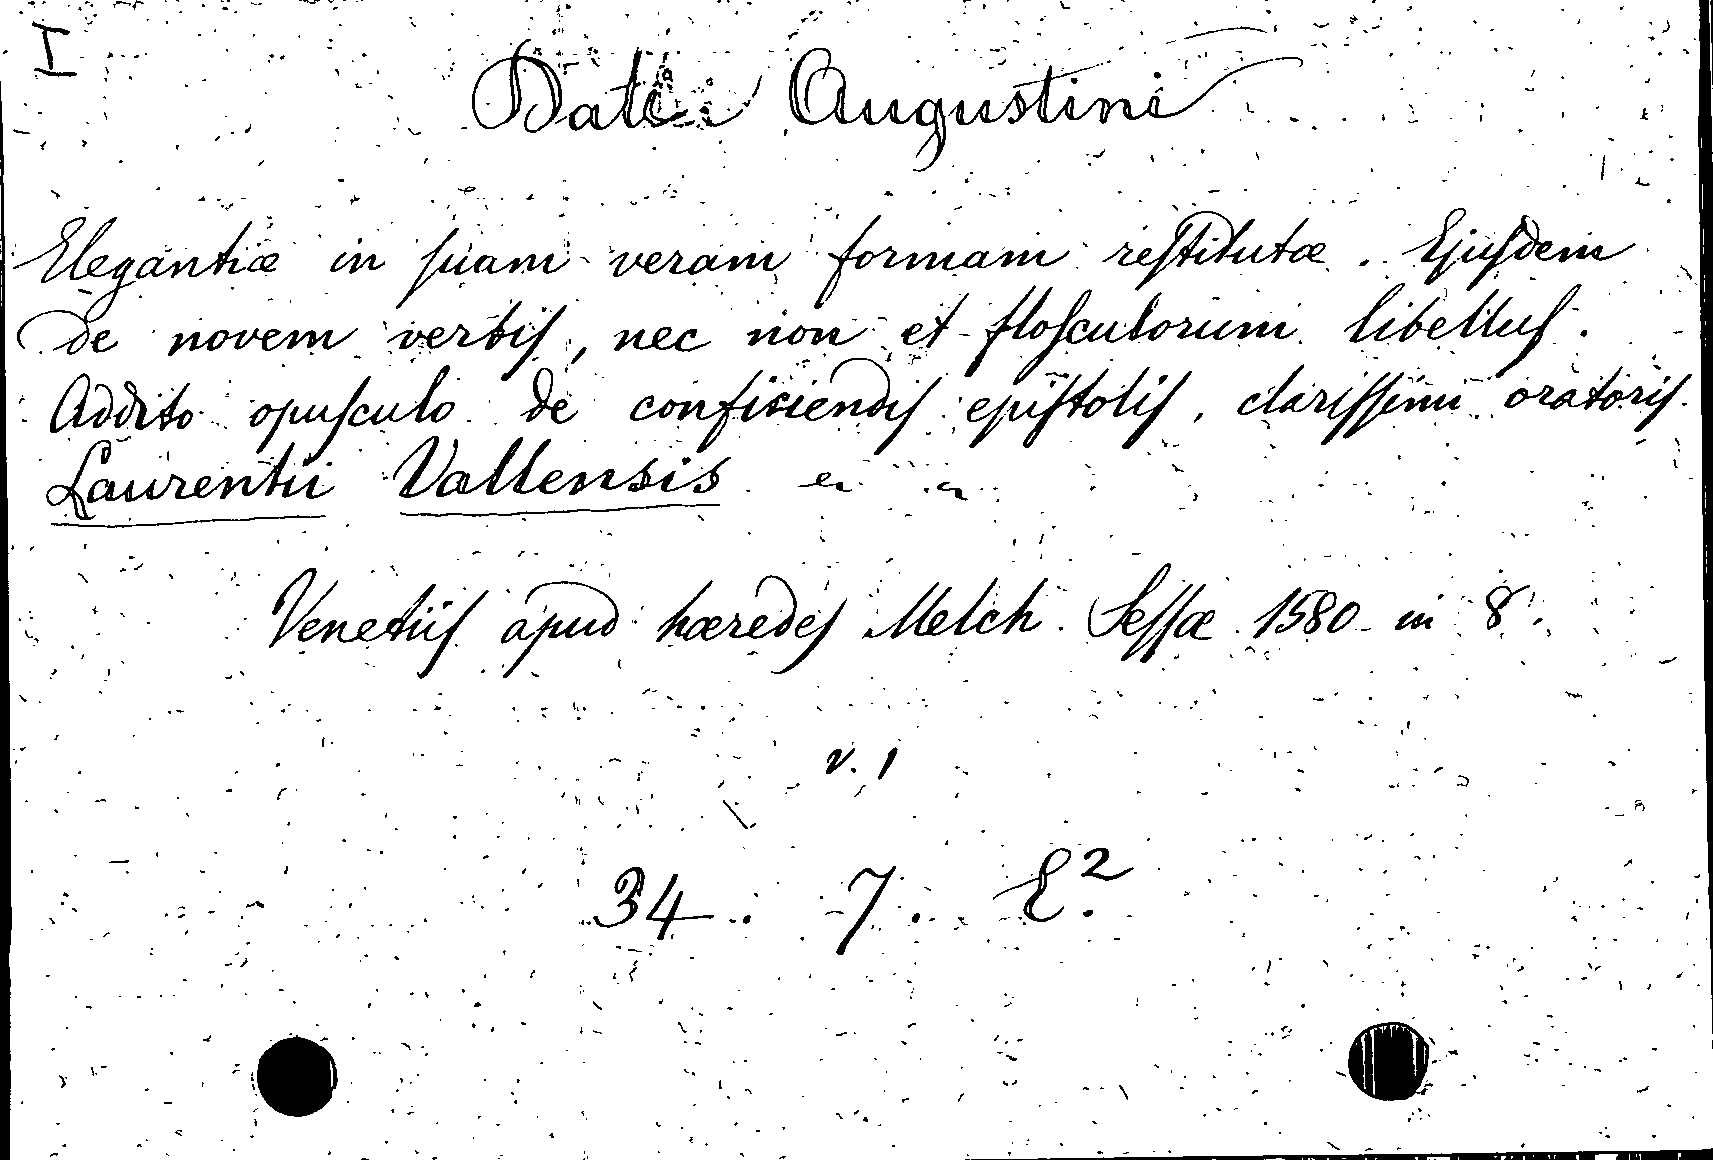 I
Dati Augustini
Elegantiæ in ſuam veram formam reſtitutæ. Ejuſdem
de novem verbiſ, nec non et floſculorum libelluſ.
Addito opuſculo de conficiendiſ epiſtoliſ, clariſſimi oratoriſ
Laurentii Vallensis
Venetiiſ apud hæredeſ Melch. Seſſæ 1580 in 8.
v. 1
34. 7. E².